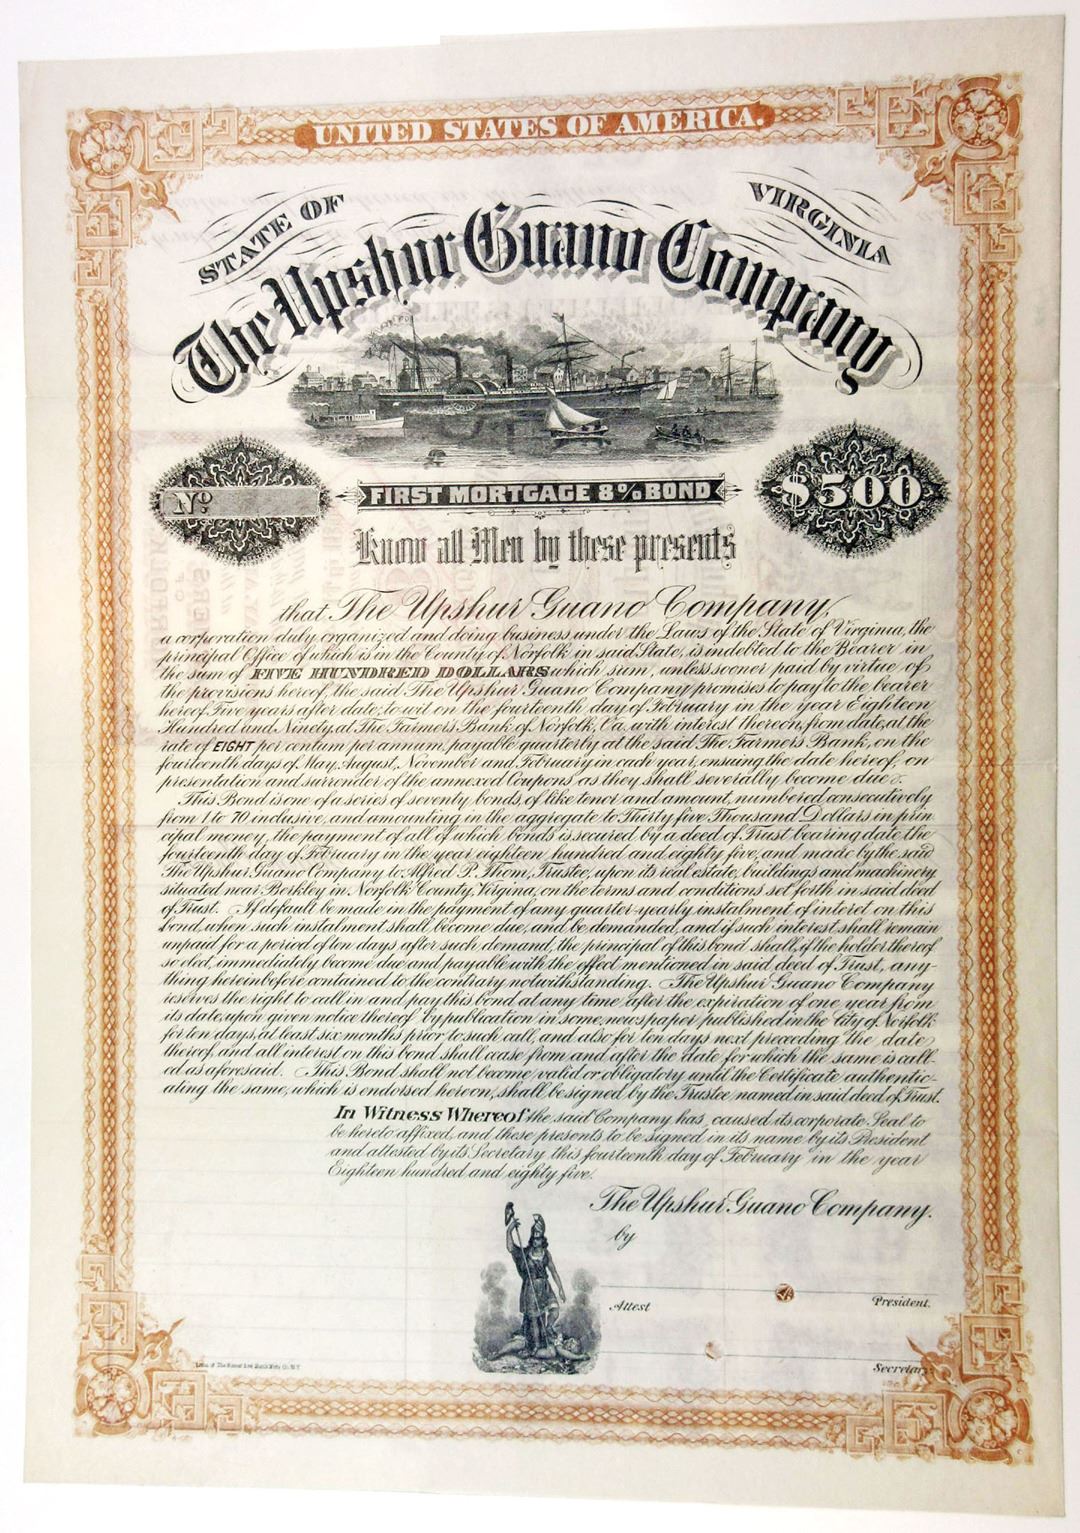 UNITED STATES OF AMERICA.
STATE OF VIRGINIA
The Upshur Guano Company
Nº
FIRST MORTGAGE 8% BOND
$500
Know all Men by these presents
that The Upshur Guano Company,
a corporation duly organized and doing business under the Laws of the State of Virginia, the
principal Office of which is in the County of Norfolk in said State, is indebted to the Bearer in
the sum of FIVE HUNDRED DOLLARS which sum, unless sooner paid by virtue of
the provisions hereof, the said The Upshur Guano Company promises to pay to the bearer
hereof Five years after date, to wit on the fourteenth day of February in the year Eighteen
Hundred and Ninety, at The Farmers Bank, of Norfolk, Va. with interest thereon, from date, at the
rate of EIGHT per centum per annum, payable quarterly at the said The Farmers Bank, on the
fourteenth days of May, August, November and February in each year, ensuing the date hereof, on
presentation and surrender of the annexed Coupons as they shall severally become due.
This Bond is one of a series of seventy bonds, of like tenor and amount, numbered consecutively
from 1 to 70 inclusive, and amounting in the aggregate to Thirty five Thousand Dollars in prin
cipal money, the payment of all of which bonds is secured by a deed of Trust bearing date the
fourteenth day of February in the year eighteen hundred and eighty five, and made by the said
The Upshur Guano Company to Alfred P. Thom, Trustee, upon its real estate, buildings and machinery
situated near Berkley in Norfolk County, Virginia, on the terms and conditions set forth in said deed
of Trust. If default be made in the payment of any quarter-yearly instalment of interest on this
bond, when such instalment shall become due, and be demanded, and if such interest shall remain
unpaid for a period of ten days after such demand, the principal of this bond shall, if the holder thereof
so elect, immediately become due and payable with the effect mentioned in said deed of Trust, any-
thing hereinbefore contained to the contrary notwithstanding. The Upshur Guano Company
reserves the right to call in and pay this bond at any time after the expiration of one year from
its date, upon given notice thereof by publication in some newspaper published in the City of Norfolk
for ten days, at least six months prior to such call, and also for ten days next preceding the date
thereof, and all interest on this bond shall cease from and after the date for which the same is call-
ed as aforesaid. This Bond shall not become valid or obligatory until the Certificate authentic-
ating the same, which is endorsed hereon, shall be signed by the Trustee named in said deed of Trust.
In Witness Whereof the said Company has caused its corporate Seal to
be hereto affixed, and these presents to be signed in its name by its President
and attested by its Secretary this fourteenth day of February in the year
Eighteen hundred and eighty five.
The Upshur Guano Company.
by
President.
Attest
Secretary.